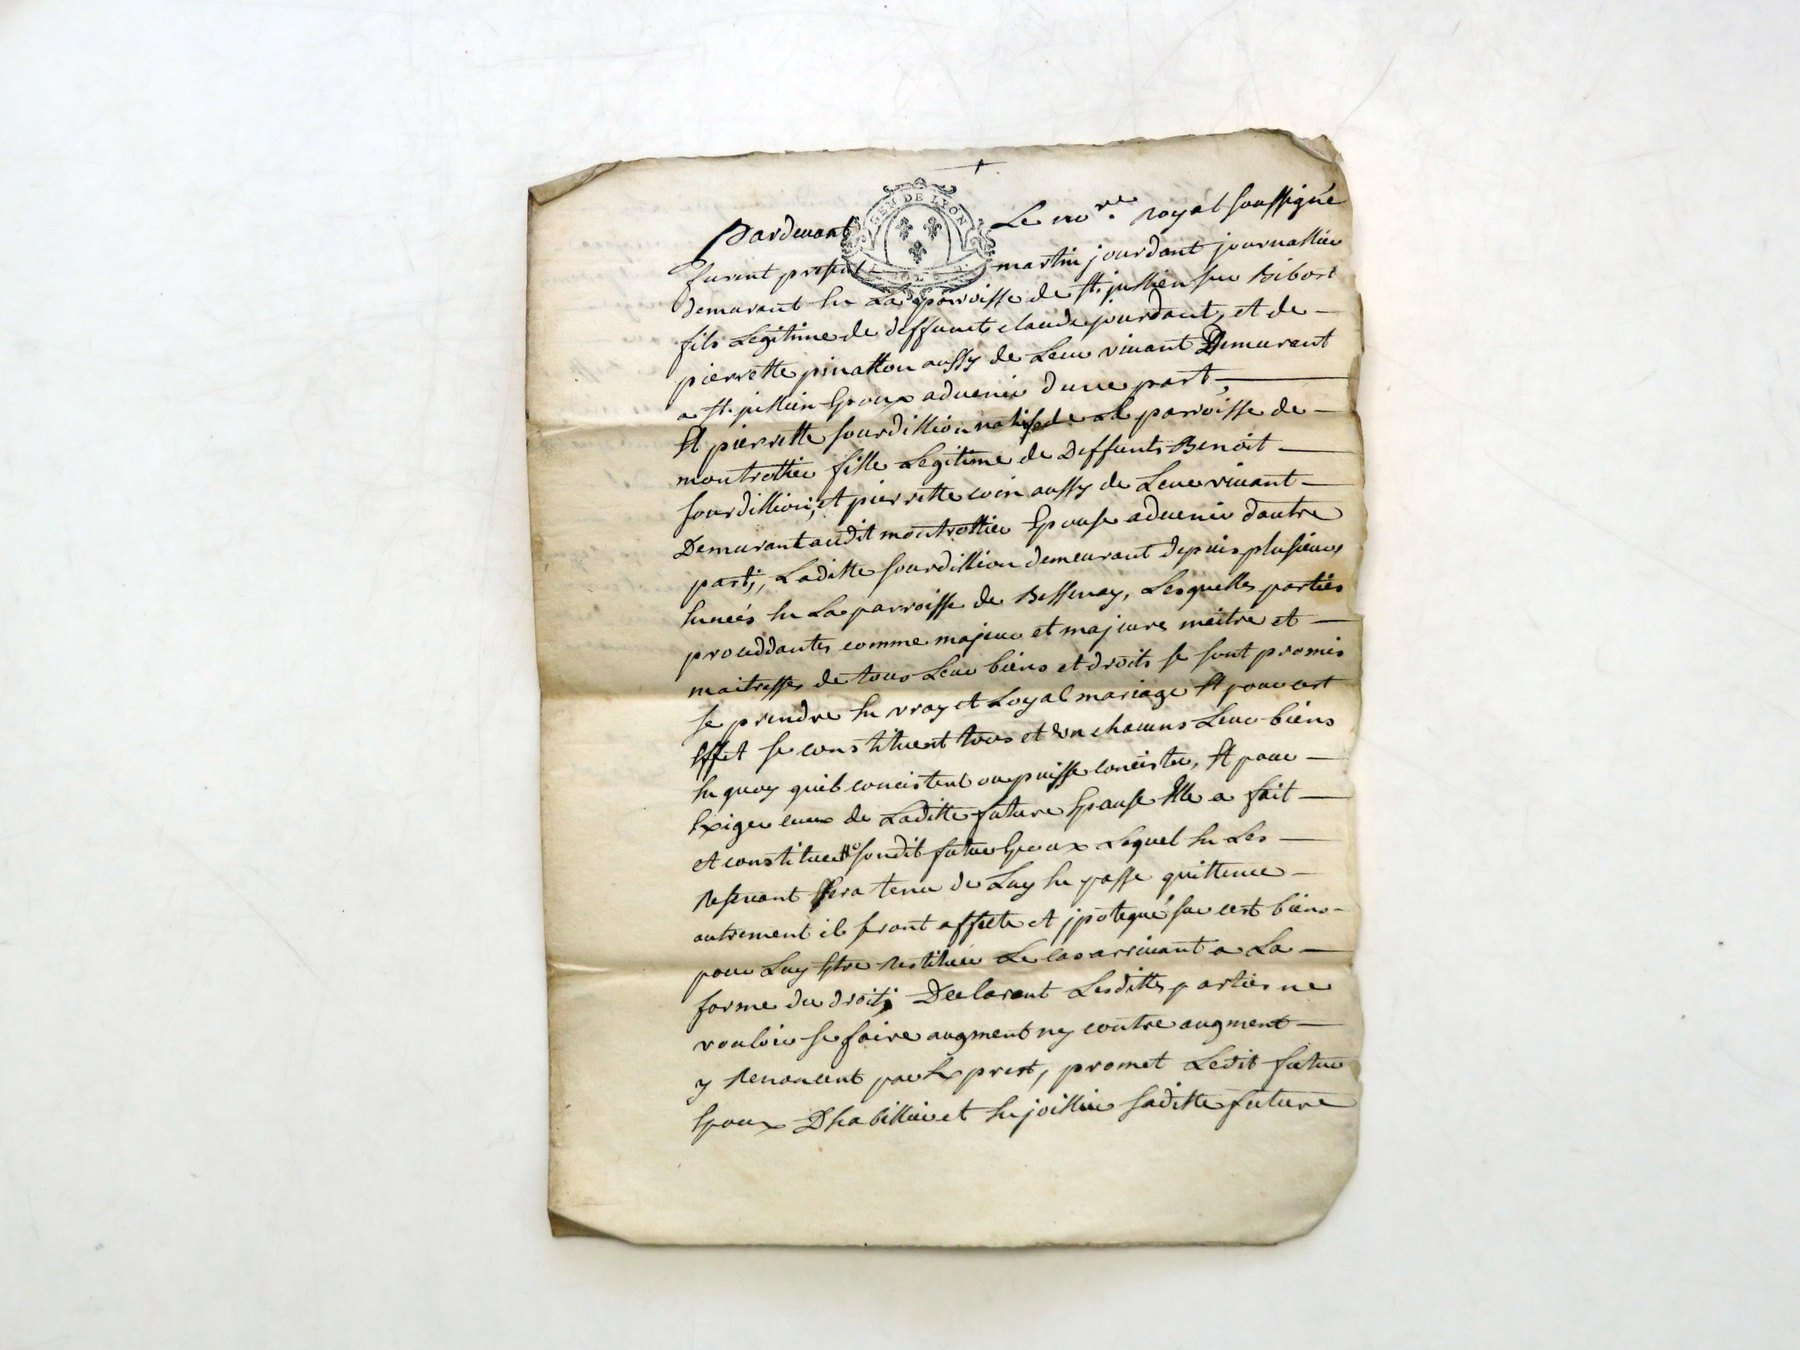 GEN DE LYON
Pardevant Le no.re royal soussigné
furent present martin jourdant journallier
demurant en La parroisse de st. jullien sur Bibost
fils Legitime de deffunts claude jourdant, et de
pierrette pinatton aussy de Leur vivant Demurant
a st. jullien Epoux advenir d'une part,
Et pierrette sourdillion native de la parroisse de
montrottier fille Legitime de Deffunts Benoit
sourdillion, et pierrette coin aussy de Leur vivant
Demurant audit montrottier Epouse advenir dautre
part, Laditte sourdillion demeurant depuis plusieurs
années en La parroisse de Bessenay, Lesquelles parties
proceddantes comme majeur et majeure maitre et
maitresse de tous Leur biens et droits se sont promis
se prendre en vray et Loyal mariage Et pour cest
Effet se constituent tous et un chacuns Leur biens
en quoy quil concistent ou puisse concister, Et pour
Exiger ceux de Laditte future Epouse Elle a fait
et constitue sondit futur Epoux Lequel en Les
resevant sera tenu de Luy en passe quittence
autrement il seront affecte et jpotequé sur cest biens
pour Luy Estre restituer Le cas arrivant a La
forme du droit, Declarant Lesdittes parties ne
vouloir se faire augment ny contre augment
y renoncent par Exprest, promet Ledit futur
Epoux Dhabillier et enjoillier saditte future